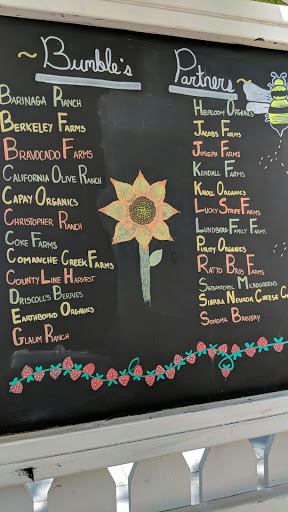 ~ Bumble's
Partners ~
Barinaga Ranch
Berkeley Farms
Bravocado Farms
California Olive Ranch
Capay Organics
Christopher Ranch
Coke Farms
Comanche Creek Farms
County Line Harvest
Driscoll's Berries
Earthbound Organics
Glaum Ranch
Heirloom Organics
Jacobs Farm
Joseph Farms
Kendall Farms
Knoll Organics
Lucky Stripe Farms
Lundberg Family Farms
Purity Organics
Ratto Bros Farms
Sierra Nevada Cheese Co
Sonoma Brinery